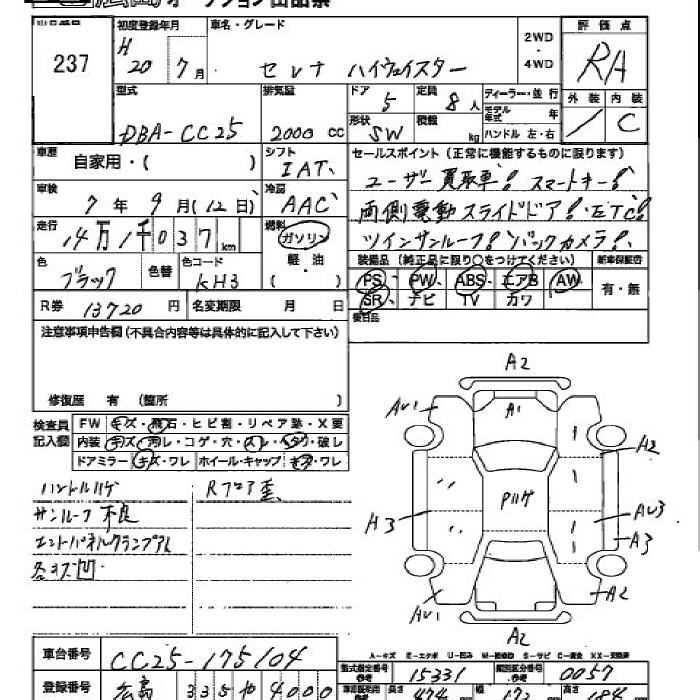 オークション出品票
出品番号 初度登録年月 車名・グレード 2WD ・ 4WD 評価点
237 H 20 7月 セレナ ハイウェイスター RA
型式 排気量 ドア 定員 ディーラー・並行 外装 内装
DBA-CC25 2000 cc 5 8人 モデル年式 年 / C
形状 積載 SW kg ハンドル 左・右
車歴 自家用・( ) シフト IAT セールスポイント (正常に機能するものに限ります)
車検 7年 9月 (12日) 冷房 AAC ユーザー買取車! スマートキー!
走行 14万1千037km 燃料 ガソリン・軽油 ( ) 両側電動スライドドア! ETC!
ツインサンルーフ! バックカメラ!
色 ブラック 色替 色コード KH3 装備品 (純正品に限り○をつけてください) 新車保証書
PS・PW・ABS・エアB・AW 有・無
R券 13720円 名変期限 月 日 SR・ナビ・TV・カワ
後日品
注意事項申告欄 (不具合内容等は具体的に記入して下さい)
修復歴 有 (箇所 )
検査員記入欄 FW キズ・飛石・ヒビ割・リペア跡・X要
内装 キズ・汚レ・コゲ・穴・スレ・ヘタリ・破レ
ドアミラー キズ・ワレ ホイール・キャップ キズ・ワレ
ハンドルハゲ Rフロア歪
サンルーフ不良
各キズ凹
A2
AU1 A1
A2
Pハゲ
H3 AU3
A3
AU1 A2
A2
A-キズ E-エクボ U-凹み W-補修跡 S-サビ C-腐食 XX-交換済
車台番号 CC25-175104 型式指定番号 参考 15331 類別区分番号 参考 0057
登録番号 広島 335 や 4000 長さ 474 173 184